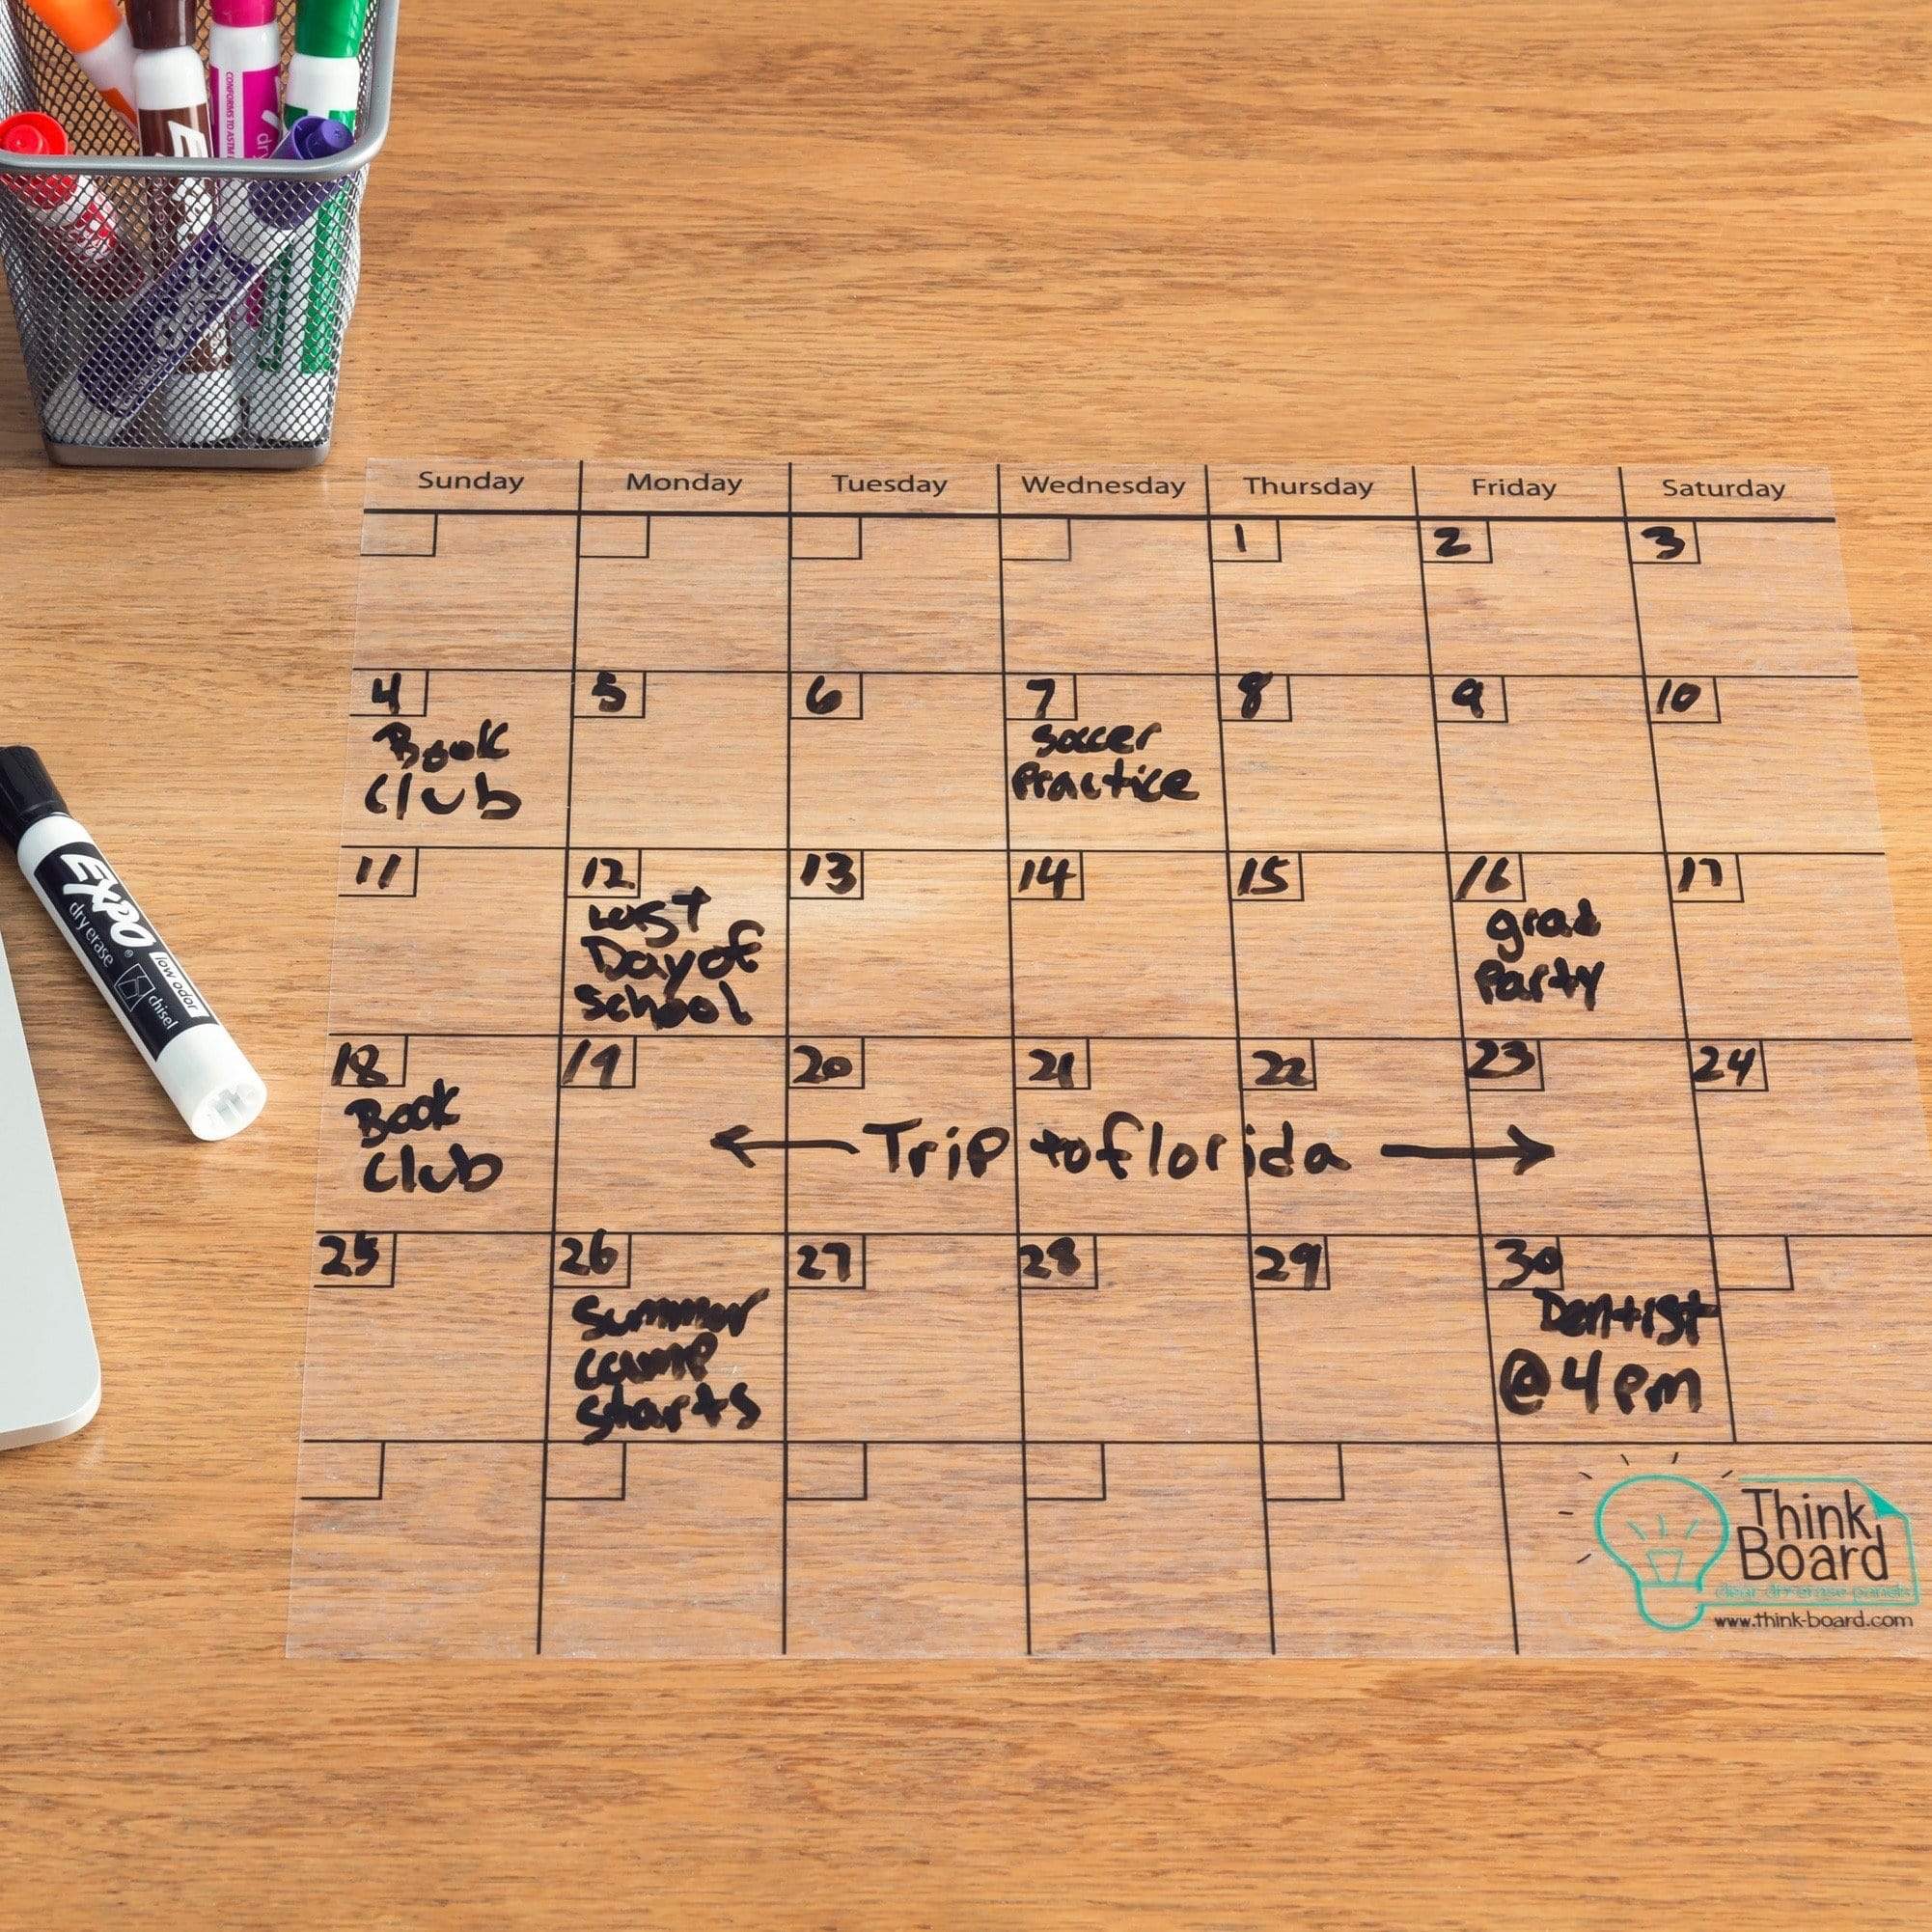 CONFORMS TO ASTM
EXPO
dry erase
low odor
chisel
Sunday Monday Tuesday Wednesday Thursday Friday Saturday
1 2 3
4 5 6 7 8 9 10
Book
Club
Soccer
Practice
11 12 13 14 15 16 17
Last
Day of
School
grad
Party
18 19 20 21 22 23 24
Book
Club
Trip to florida
25 26 27 28 29 30
Summer
camp
starts
Dentist
@ 4 pm
Think
Board
clear dry erase panels
www.think-board.com